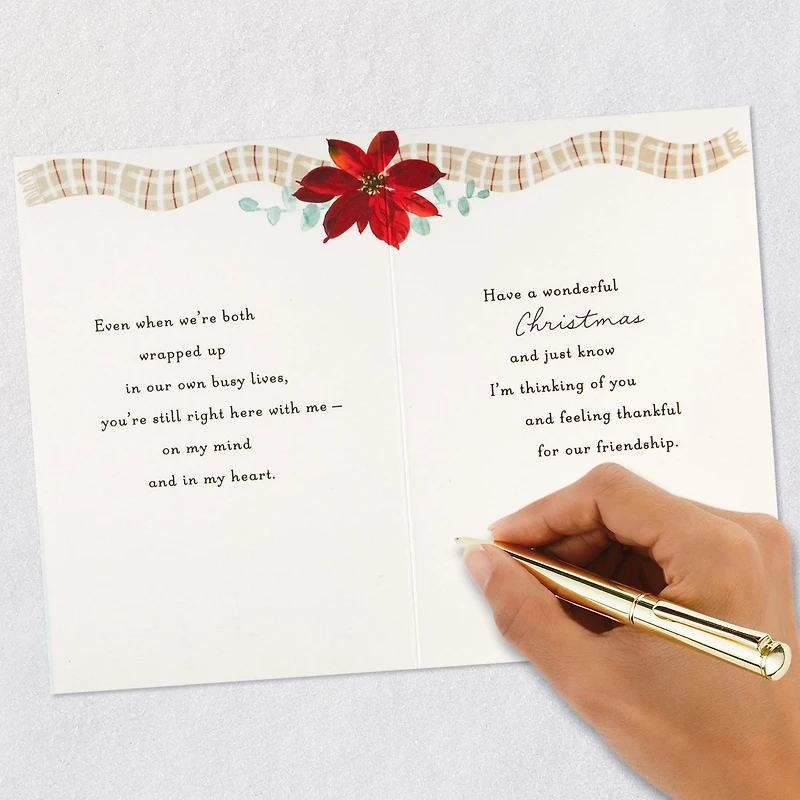 Even when we're both
wrapped up
in our own busy lives,
you're still right here with me –
on my mind
and in my heart.
Have a wonderful
Christmas
and just know
I'm thinking of you
and feeling thankful
for our friendship.